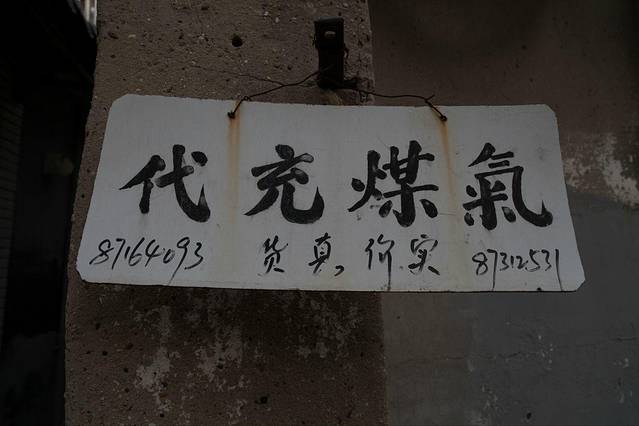 代充煤氣
87164093 货真价实 87312531